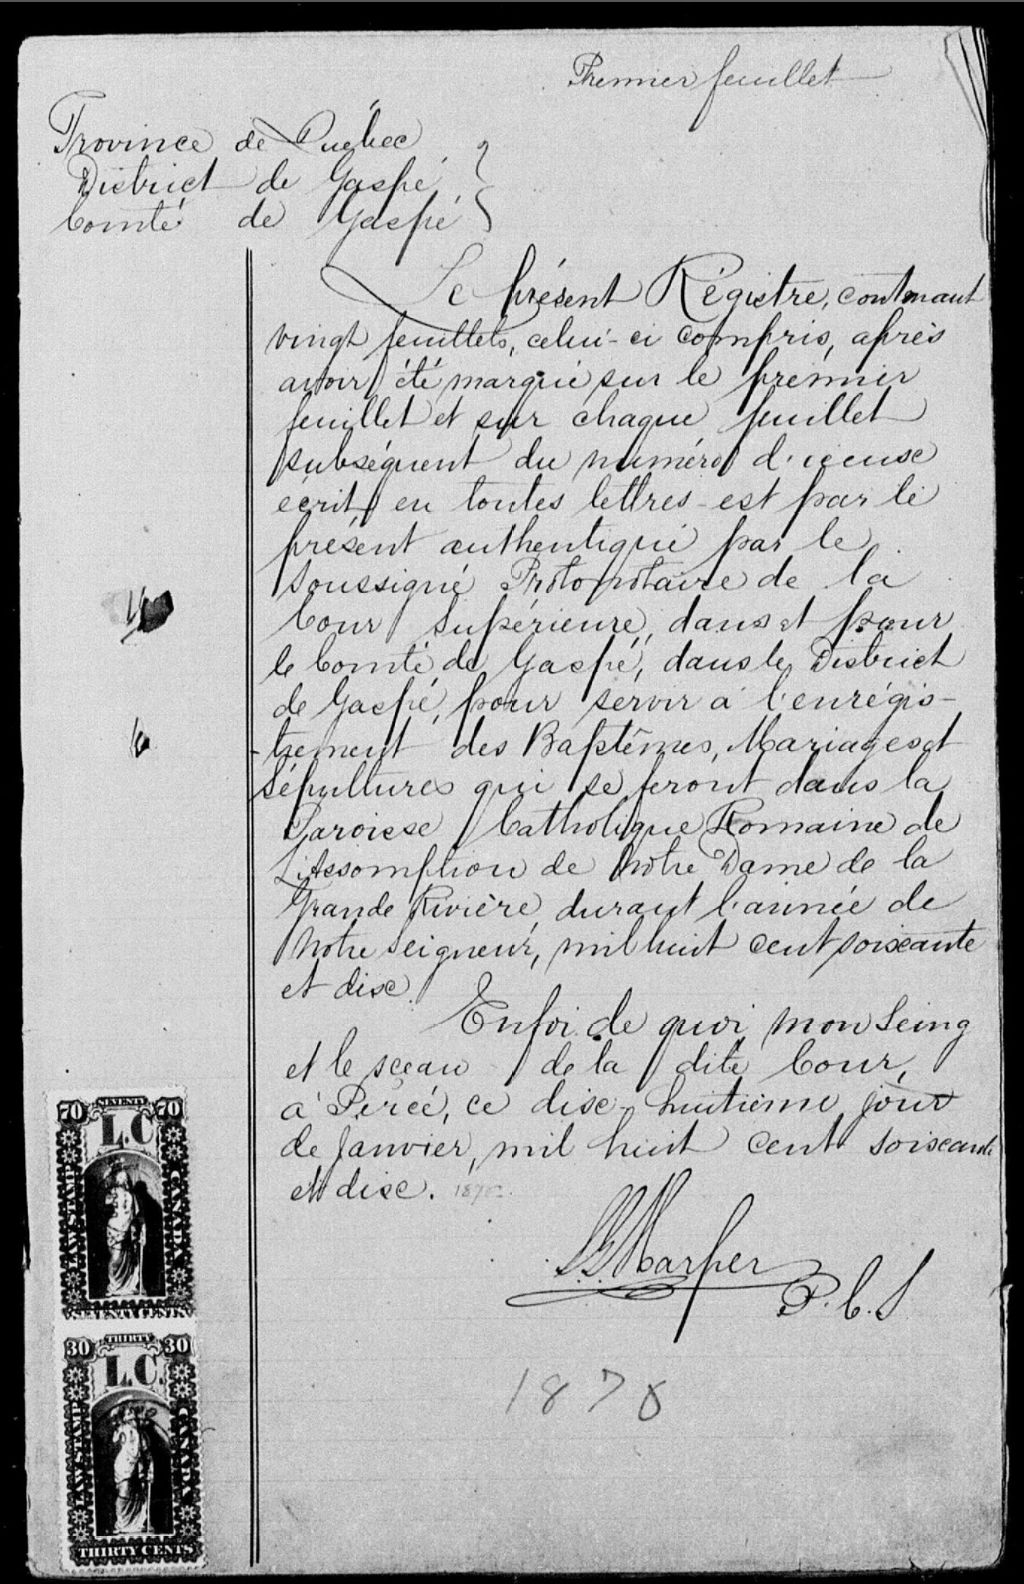 Premier feuillet
Province de Québec
District de Gaspé
Comté de Gaspé
Le présent Régistre, contenant
vingt feuillets, celui-ci compris, après
avoir été marqué sur le premier
feuillet et sur chaque feuillet
subséquent du numéro d'iceux
écrit en toutes lettres est par le
présent authentiqué par le
soussigné Protonotaire de la
Cour Supérieure, dans et pour
le Comté de Gaspé, dans le District
de Gaspé, pour servir à l'enrégis-
-trement des Baptêmes, Mariages et
Sépultures qui se feront dans la
Paroisse Catholique Romaine de
L'Assomption de Notre Dame de la
Grande Rivière, durant l'année de
Notre Seigneur, mil huit cent soixante
et dix.
En foi de quoi mon Seing
et le sceau de la dite Cour,
à Percé, ce dix-huitième jour
de Janvier, mil huit cent soixante
et dix. 1870
Harper
P.C.S
1870
70 SEVENTY 70
L.C
LAW STAMP
CANADA
SEVENTY CENTS
30 THIRTY 30
L.C.
LAW STAMP
CANADA
THIRTY CENTS